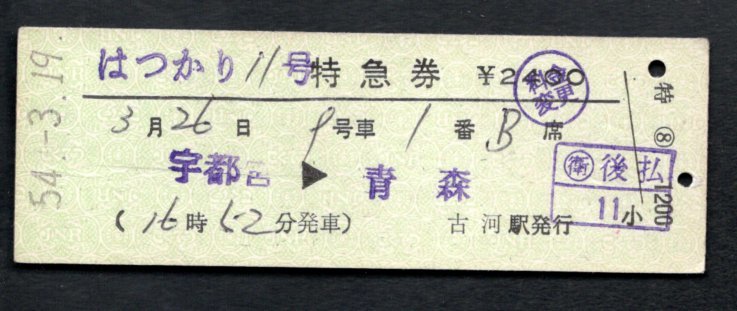 54.-3.19.
はつかり11号特急券 ¥2400
料金変更
3月26日 9号車 1番 B席
宇都宮 ▶ 青森
(16時52分発車) 古河駅発行
特 ⑧ 1200
衛 後払
11小